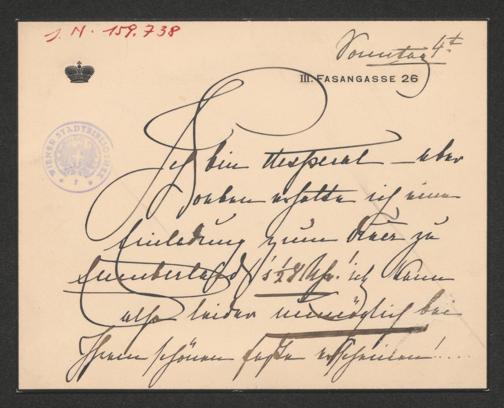 J. N. 159.738
Sonntag 4t
III. FASANGASSE 26
WIENER STADTBIBLIOTHEK
Ich bin desperat – aber
soeben erhalte ich eine
Einladung zum Diner zu
Cumberlands ½8 Uhr! ich kann
also leider unmöglich bei
Ihrem schönen Feste erscheinen!....